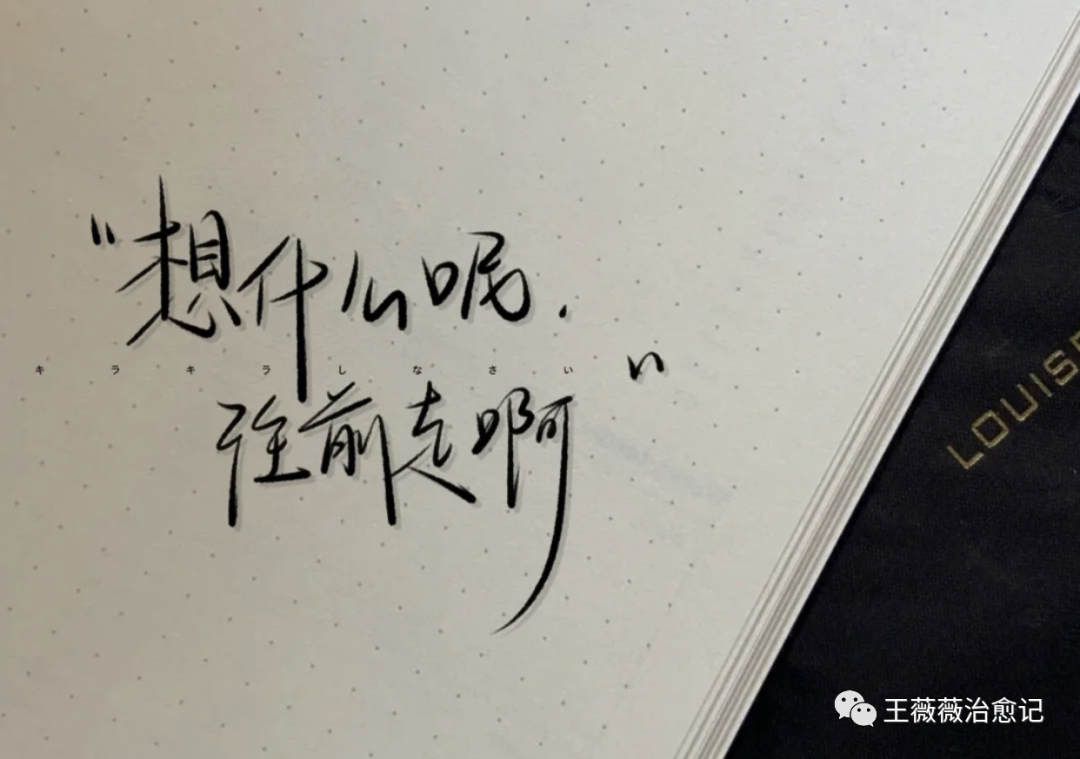 "想什么呢.
キラキラしなさい
往前走啊"
LOUISE
王薇薇治愈记